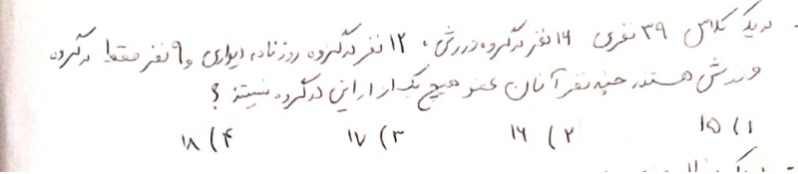 در یک کلاس ۳۹ نفری ۱۶ نفر در گروه ورزش، ۱۲ نفر در گروه روزنامه دیواری و ۹ نفر فقط در گروه
ورزش هستند. چند نفر آنان عضو هیچ یک از این دو گروه نیستند ؟
۱) ۱۵ ۲) ۱۶ ۳) ۱۷ ۴) ۱۸